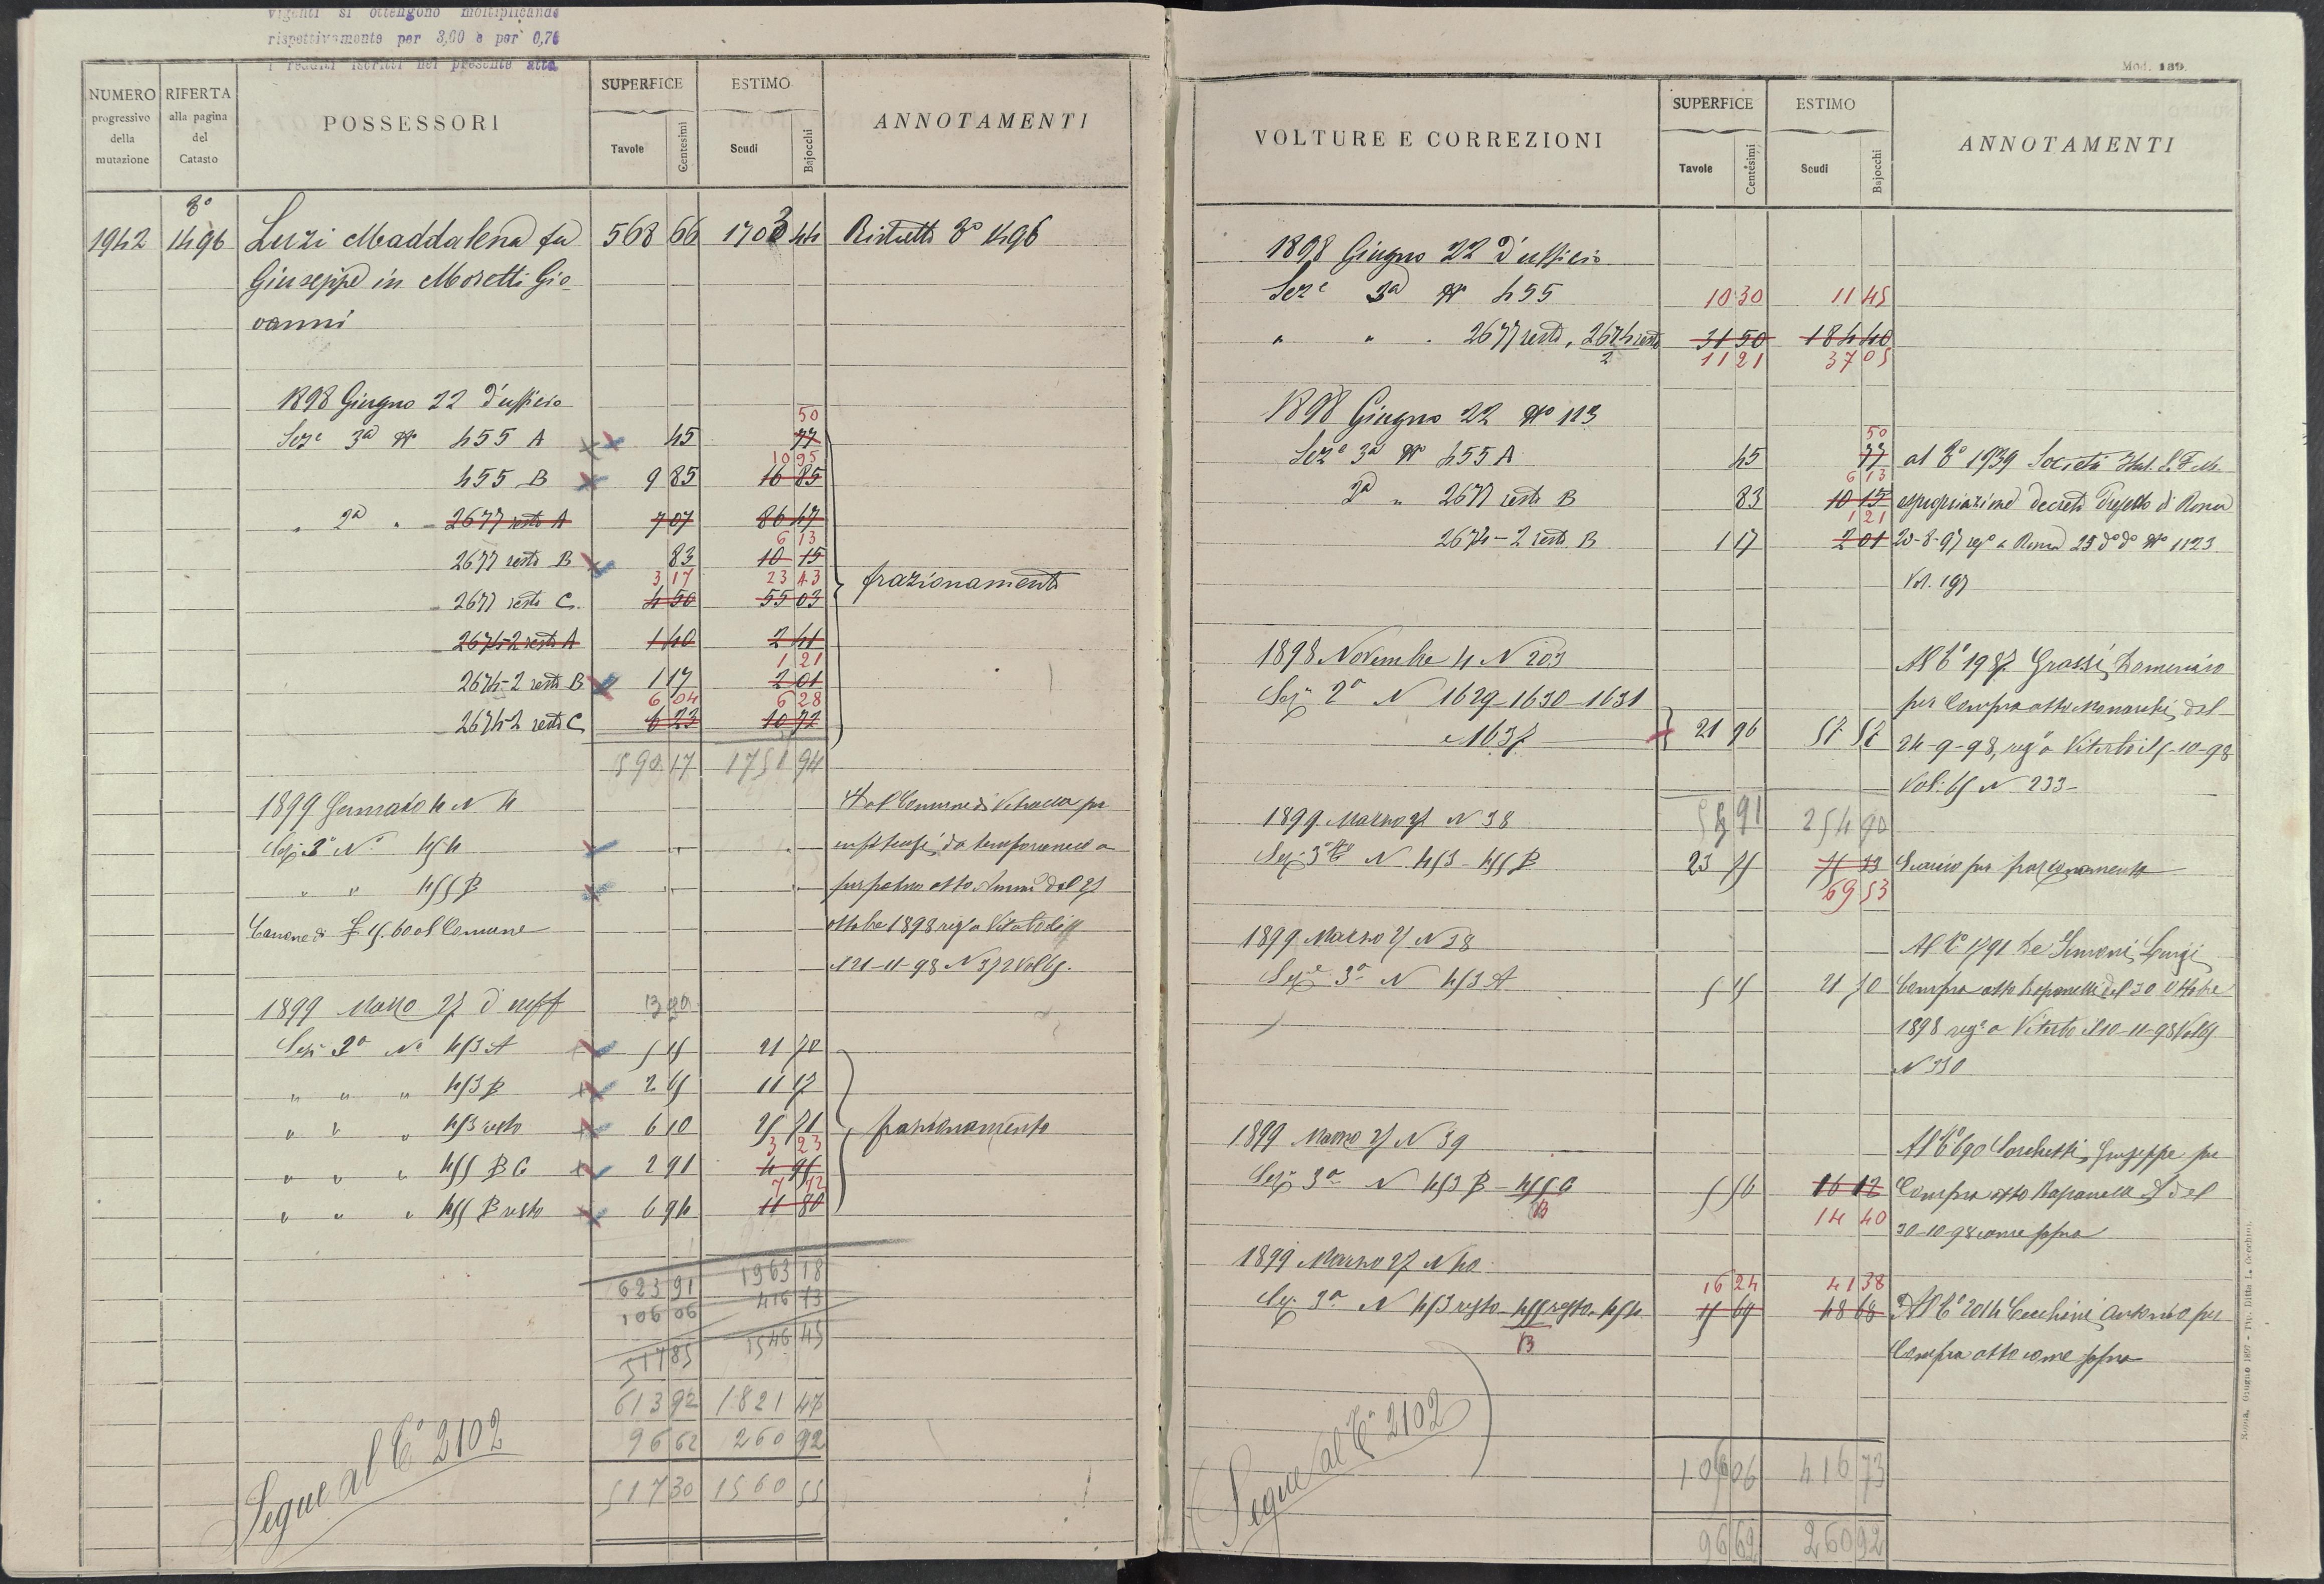 vigenti si ottengono moltiplicando
rispettivamente per 3,00 e per 0,76
i redditi iscritti nel presente atto
NUMERO progressivo della mutazione
RIFERTA alla pagina del Catasto
POSSESSORI
SUPERFICE Tavole Centesimi
ESTIMO Scudi Bajocchi
ANNOTAMENTI
1942 8° 1496 Luzi Maddalena fu 568 66 1703 44 Ristretto 8° 1496
Giuseppe in Moretti Gio-
vanni
1898 Giugno 22 d'ufficio
50
Seze 3a No 455 A 45 77
10 95
455 B 9 85 16 85
" 2a " 2677 resto A 7 07 86 47
6 13
2677 resto B 83 10 15
3 17 23 43
2677 resto C. 4 50 55 03 frazionamento
2674-2 resto A 1 40 2 41
1 21
2674-2 resto B 1 17 2 01
6 04 6 28
2674-2 resto C 6 23 10 72
590 17 1751 94
1899 Gennaio 4 N 4 Dal Comune di Vetralla per
Sez 3a No 454 da temporanea a
" " 455 B perpetua atto del 27
Canone di al Comune ottobre 1898 reg a Viterbo
21-11-98 N 372 Vol 65.
1899 Marzo 27 d'uff
Sez 3a No 453 A 5 45 21 70
" " " 453 B 2 65 11 17
" " " 453 resto 6 10 25 71 frazionamento
3 23
" " " 455 B C 2 91 4 95
7 72
" " " 455 B resto 6 94 11 80
623 91 1963 18
106 06 416 73
517 85 1546 45
613 92 1821 47
96 62 260 92
517 30 1560 55
Segue al 2102
Mod. 139.
VOLTURE E CORREZIONI
SUPERFICE Tavole Centesimi
ESTIMO Scudi Bajocchi
ANNOTAMENTI
1898 Giugno 22 d'ufficio
Seze 3a No 455 10 30 11 45
" " . 2677 resto, 2674 resto 31 50 184 40
2 11 21 37 05
1898 Giugno 22 No 113
50
Seze 3a No 455 A 45 77 al 8° 1939 Società Ital. S. F. M.
6 13
2a " 2677 resto B 83 10 15 espropriazione decreto Prefetto di Roma
1 21
2674-2 resto B 1 17 2 01 20-8-97 rego a Roma 25 do do No 1123
Vol. 197
1898 Novembre 4 N 203 Al 1987 Grassi Domenico
Sez 2a N 1629-1630-1631 per Compra atto del
e 1637 21 96 57 57 24-9-98, reg a Viterbo il 5-10-98
Vol. 65 N 233
254 90
1899 Marzo 27 N 38
Sez 3a N 453-455 B 23 75 Scarico per frazionamento
69 53
1899 Marzo 27 N 38 Al 1791 De Simoni Luigi
Sez 3a N 453 A 5 45 21 70 Compra atto del 30 Ottobre
1898 reg a Viterbo il 10-11-98 Vol 65
N 330
1899 Marzo 27 N 39 Al 690 Giuseppe per
Sez 3a N 453 B - 455 C 5 56 16 12 Compra atto del
B 14 40 30-10-98 come sopra
1899 Marzo 27 N 40
16 24 41 38
Sez 3a N 453 resto - 455 resto - 454 48 68 Al 2014 Cecchini Antonio per
B Compra atto come sopra
Segue al 2102
106 06 416 73
96 62 260 92
Roma, Giugno 1897 - Tip. Ditta L. Cecchini.